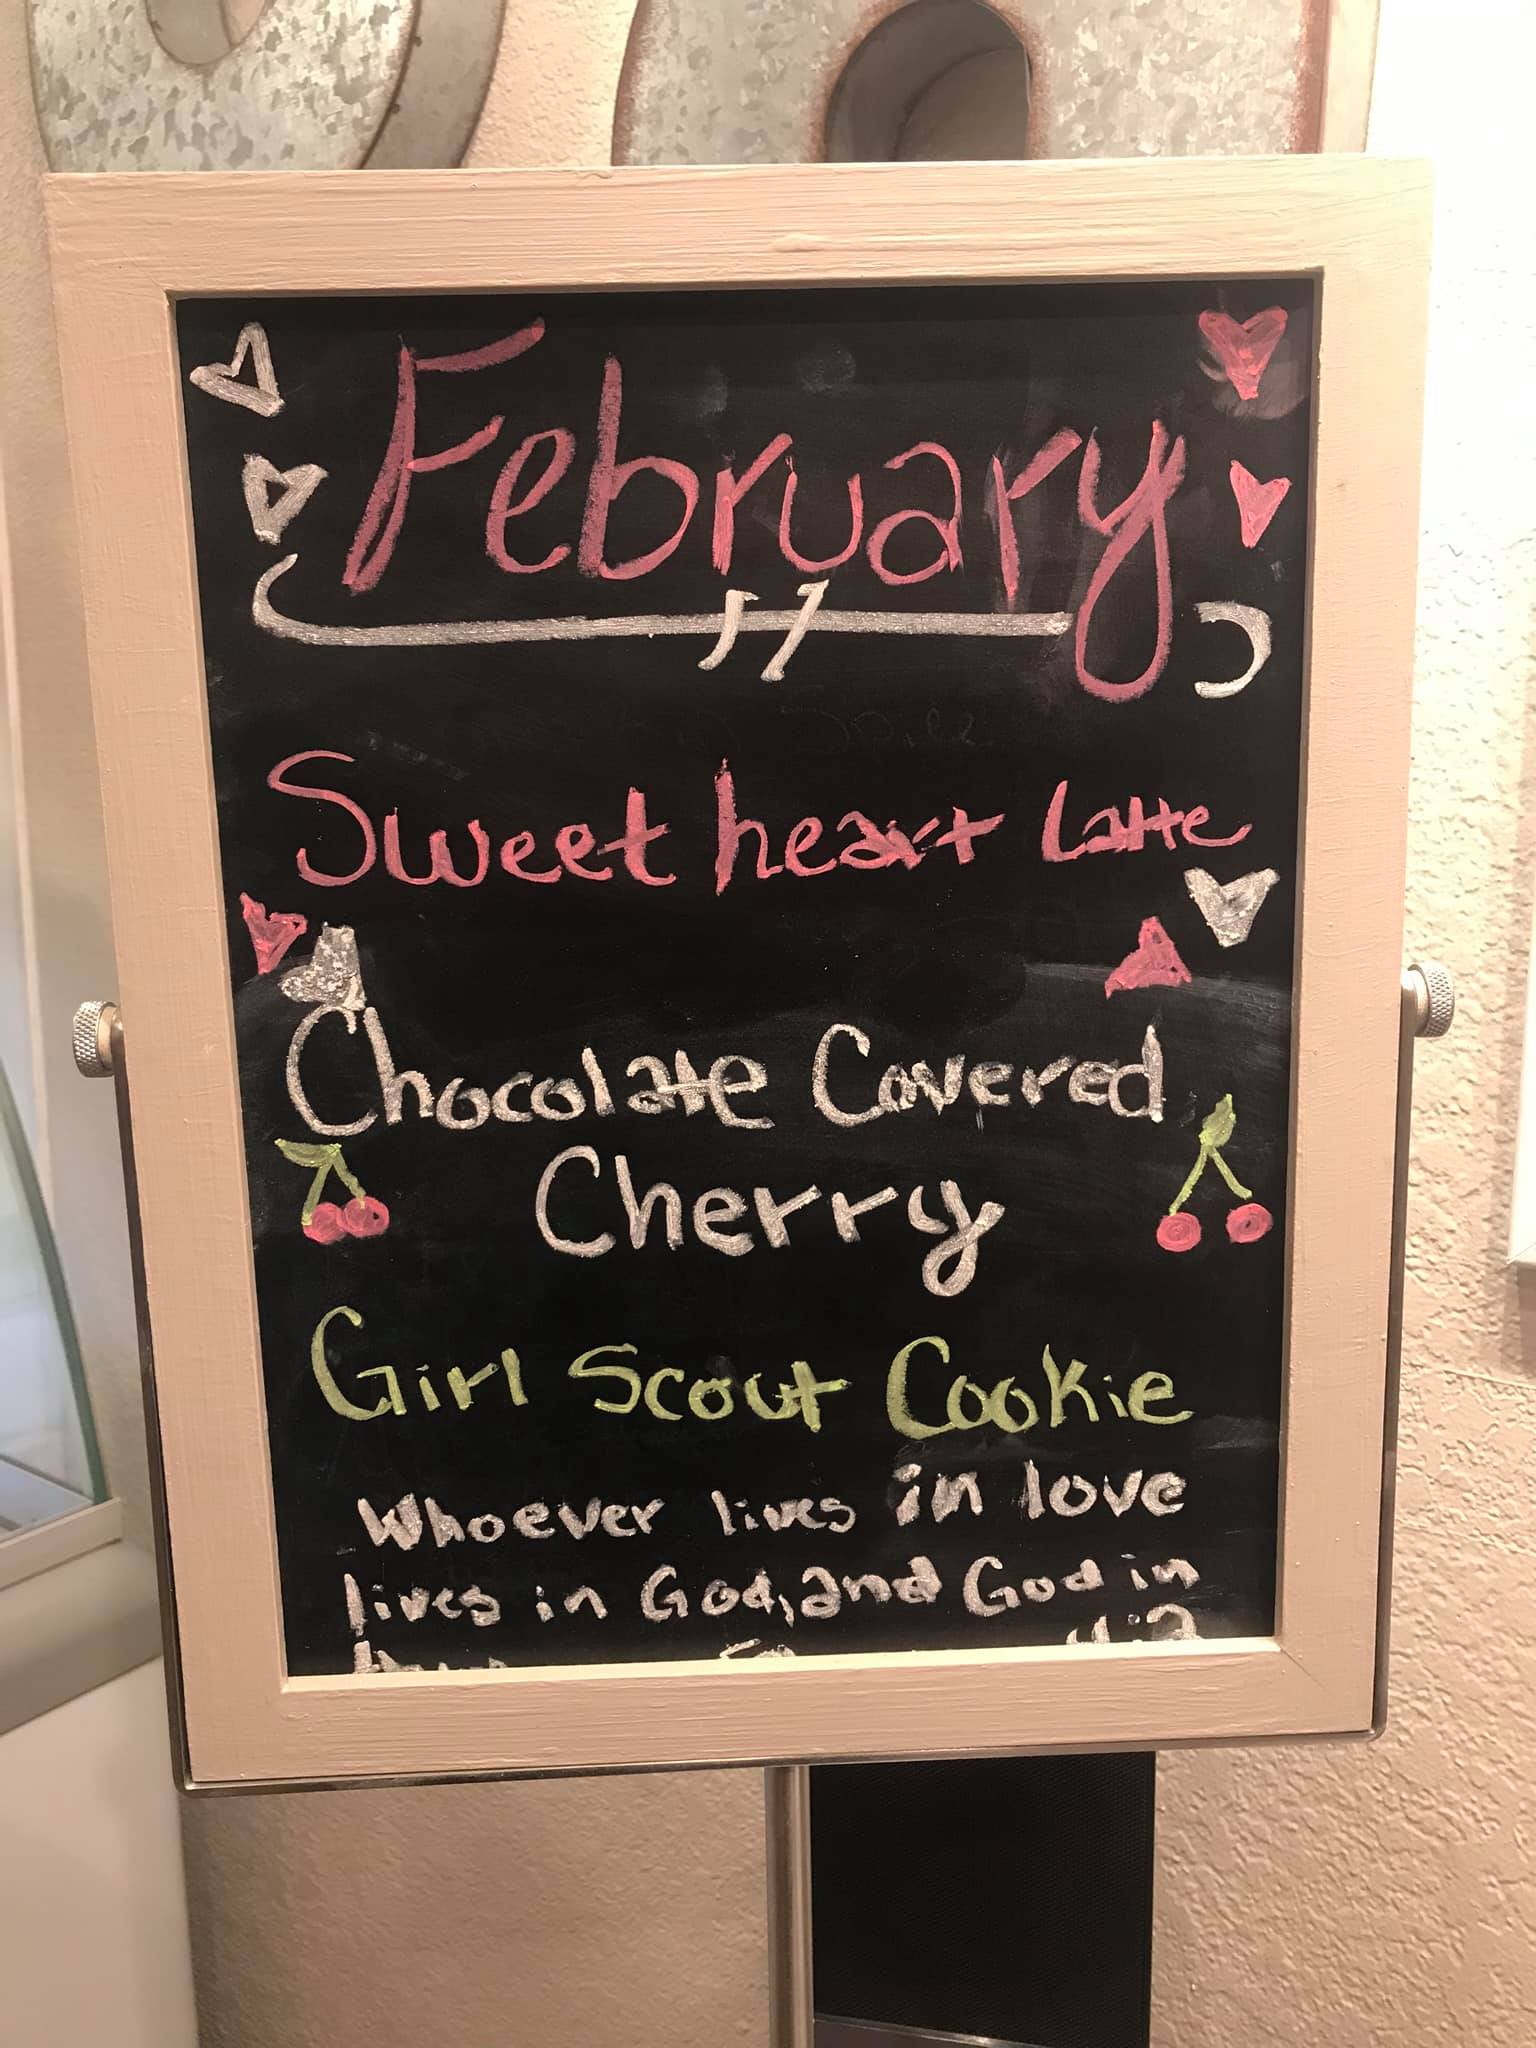 February
Sweet heart Latte
Chocolate Covered
Cherry
Girl Scout Cookie
Whoever lives in love
lives in God, and God in